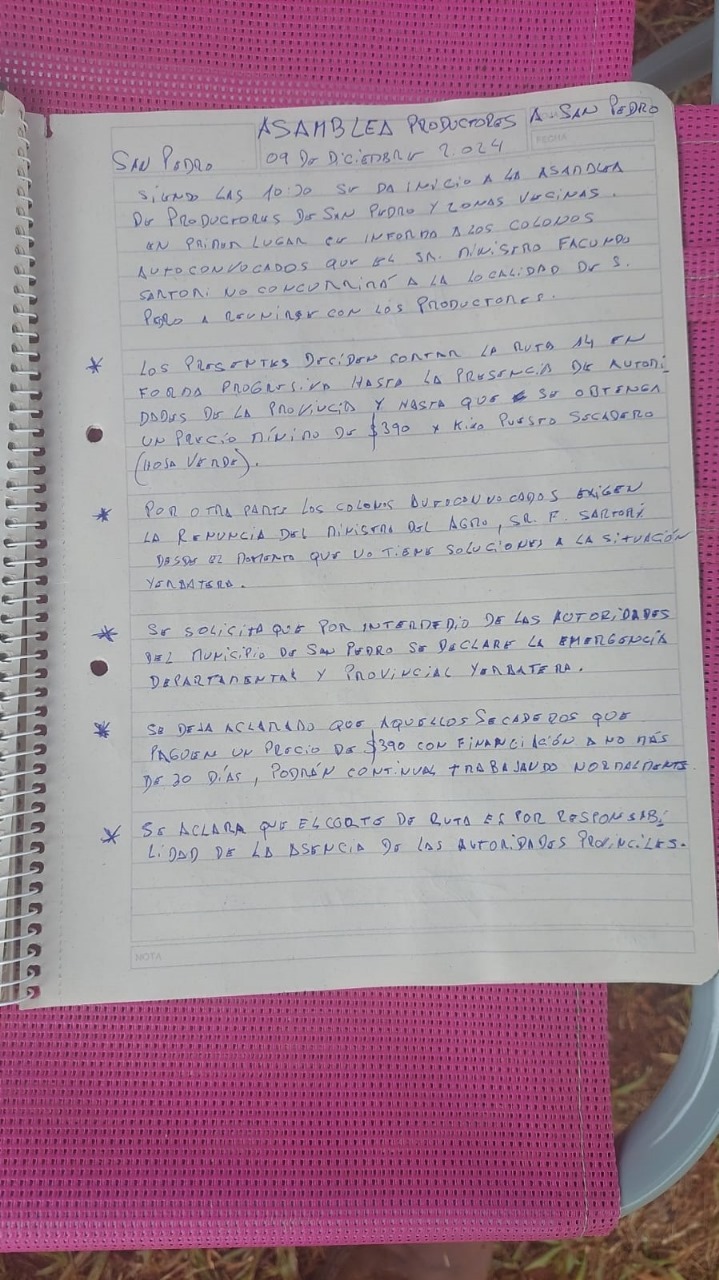 ASAMBLEA PRODUCTORES A. SAN PEDRO
FECHA
SAN PEDRO 09 DE DICIEMBRE 2.024
SIENDO LAS 10:20 SE DA INICIO A LA ASAMBLEA
DE PRODUCTORES DE SAN PEDRO Y ZONAS VECINAS.
EN PRIMER LUGAR SE INFORMA A LOS COLONOS
AUTOCONVOCADOS QUE EL SR. MINISTRO FACUNDO
SARTORI NO CONCURRIRÁ A LA LOCALIDAD DE S.
PEDRO A REUNIRSE CON LOS PRODUCTORES.
* LOS PRESENTES DECIDEN CORTAR LA RUTA 14 EN
FORMA PROGRESIVA HASTA LA PRESENCIA DE AUTORI
DADES DE LA PROVINCIA Y HASTA QUE SE OBTENGA
UN PRECIO MÍNIMO DE $390 x KILO PUESTO SECADERO
(HOJA VERDE).
* POR OTRA PARTE LOS COLONOS AUTOCONVOCADOS EXIGEN
LA RENUNCIA DEL MINISTRO DEL AGRO, SR. F. SARTORI
DESDE EL MOMENTO QUE NO TIENE SOLUCIONES A LA SITUACIÓN
YERBATERA.
* SE SOLICITA QUE POR INTERMEDIO DE LAS AUTORIDADES
DEL MUNICIPIO DE SAN PEDRO SE DECLARE LA EMERGENCIA
DEPARTAMENTAL Y PROVINCIAL YERBATERA.
* SE DEJA ACLARADO QUE AQUELLOS SECADEROS QUE
PAGUEN UN PRECIO DE $390 CON FINANCIACIÓN A NO MÁS
DE 30 DÍAS, PODRÁN CONTINUAR TRABAJANDO NORMALMENTE
* SE ACLARA QUE EL CORTE DE RUTA ES POR RESPONSABI
LIDAD DE LA ASENCIA DE LAS AUTORIDADES PROVINCILES.
NOTA